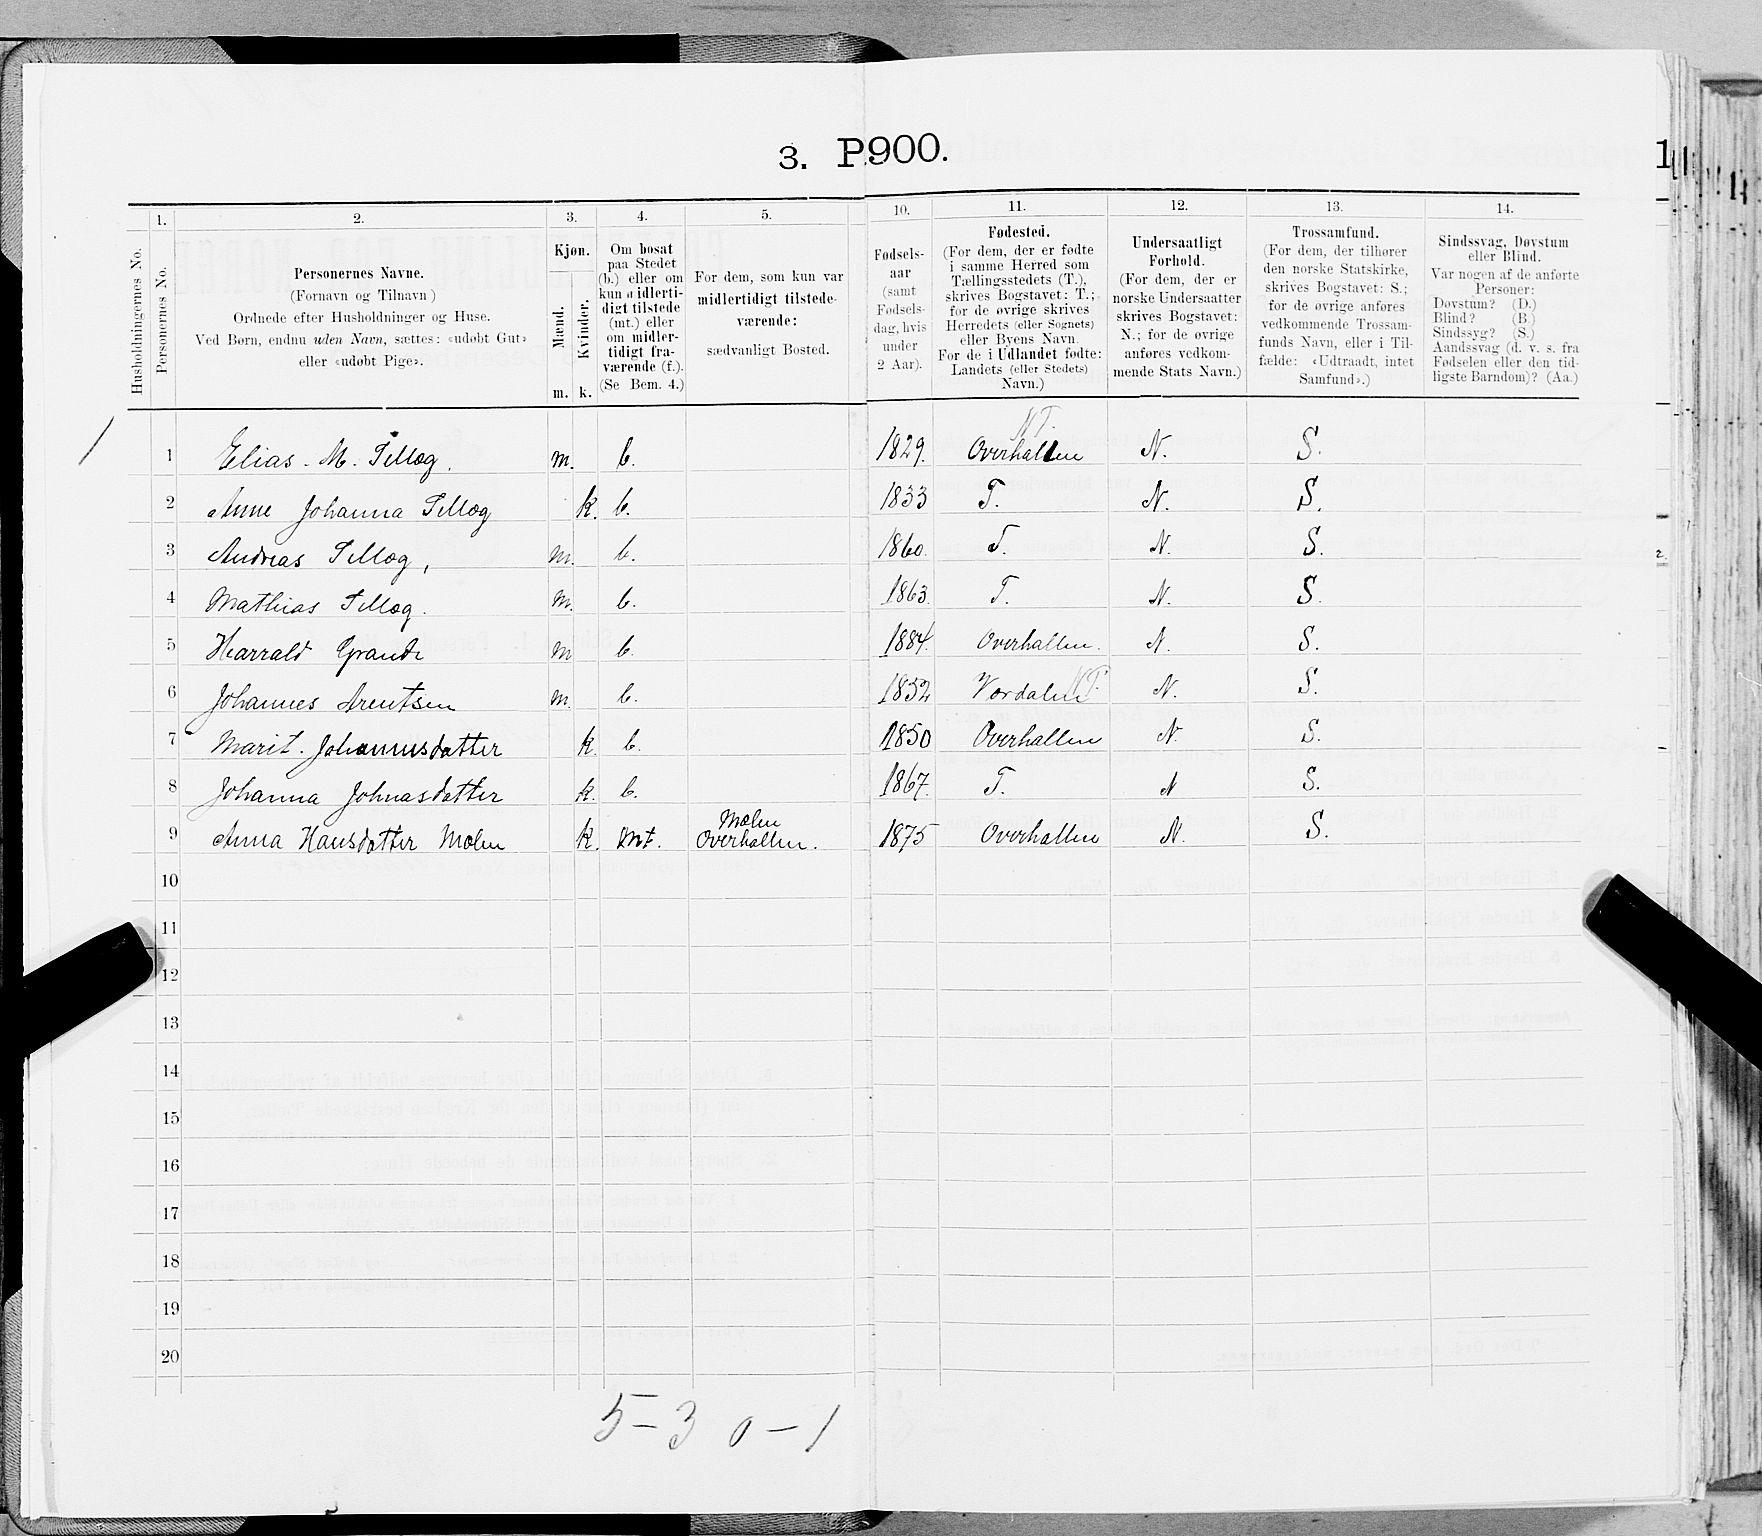 3. P.900.
1
1. 2. 3. 4. 5. 10. 11. 12. 13. 14.
Husholdningernes No.
Personernes No.
Personernes Navne.
(Fornavn og Tilnavn)
Ordnede efter Husholdninger og Huse.
Ved Børn, endnu uden Navn, sættes: «udøbt Gut»
eller «udøbt Pige».
Kjøn.
Mænd.
Kvinder.
m. k.
Om bosat
paa Stedet
(b.) eller om
kun midlerti-
digt tilstede
(mt.) eller
om midler-
tidigt fra-
værende (f.).
(Se Bem. 4.)
For dem, som kun var
midlertidigt tilstede-
værende:
sædvanligt Bosted.
Fødsels-
aar
(samt
Fødsels-
dag, hvis
under
2 Aar).
Fødested.
(For dem, der er fødte
i samme Herred som
Tællingsstedets (T.),
skrives Bogstavet: T.;
for de øvrige skrives
Herredets (eller Sognets)
eller Byens Navn.
For de i Udlandet fødte:
Landets (eller Stedets)
Navn.)
Undersaatligt
Forhold.
(For dem, der er
norske Undersaatter
skrives Bogstavet:
N.; for de øvrige
anføres vedkom-
mende Stats Navn.)
Trossamfund.
(For dem, der tilhører
den norske Statskirke,
skrives Bogstavet: S.;
for de øvrige anføres
vedkommende Trossam-
funds Navn, eller i Til-
fælde: «Udtraadt, intet
Samfund».)
Sindssvag, Døvstum
eller Blind.
Var nogen af de anførte
Personer:
Døvstum? (D.)
Blind? (B.)
Sindssyg? (S.)
Aandssvag (d. v. s. fra
Fødselen eller den tid-
ligste Barndom)? (Aa.)
NT.
1 Elias. M. Tillog. m. b. 1829. Overhallen N. S.
2 Anne Johanna Tillog k. b. 1833 T. N. S.
3 Andreas Tillog, m. b. 1860. T. N. S.
4 Mathias Tillog. m. b. 1863. T. N. S.
5 Harrald Grande m b. 1884. Overhallen. N. S.
6 Johannes Arentsen m. b. 1852 Værdalen NT. N. S.
7 Marit. Johannesdatter k. b. 1850 Overhallen N. S.
8 Johanna Johnasdatter k. b. 1867. T. N S.
Mølen
9 Anna Hansdatter Mølen k. mt. Overhallen. 1875 Overhallen N. S.
10
11
12
13
14
15
16
17
18
19
20
5-3 0-1